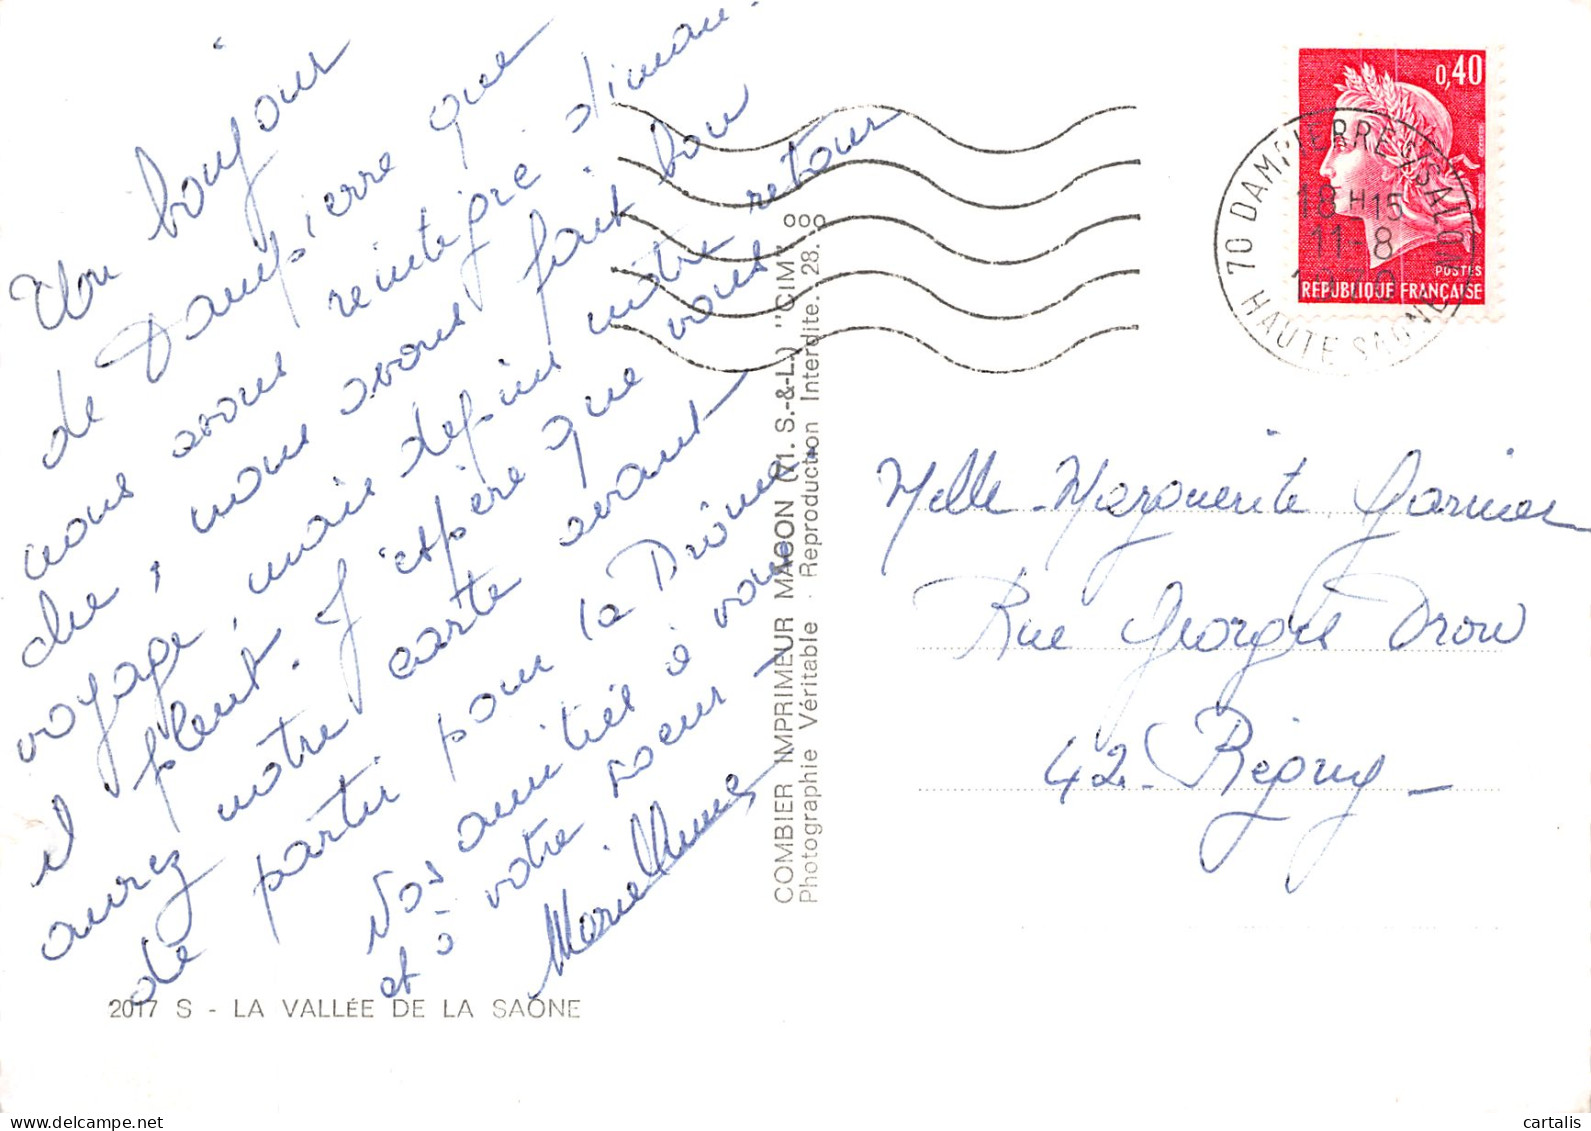 Un bonjour
de Dampierre que
nous avons réintégré diman-
che, nous avons fait bon
voyage, mais depuis notre retour
il pleut. J'espère que vous
aurez notre carte avant
de partir pour la Drôme.
Nos amitiés à vous
et à votre soeur -
2017 S - LA VALLÉE DE LA SAÔNE
COMBIER IMPRIMEUR MACON (71. S.-&-L.) "CIM"
Photographie Véritable · Reproduction Interdite. 28.
0,40
POSTES
RÉPUBLIQUE FRANÇAISE
70 DAMPIERRE S/SALON
18 H 15
11-8
1970
HAUTE SAONE
Melle Marguerite Garnier
Rue Georges Drou
42 - Régny -
cartalis